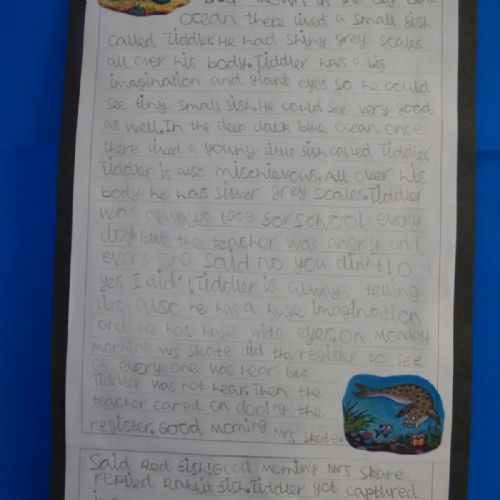 down in the big blue
ocean there lived a small fish
called Tiddler. He had shiny grey scales
all over his body. Tiddler has a big
imagination and giant eyes so he could
see tiny small fish. He could see very good
as well. In the deep dark blue ocean once
there lived a young little fish called Tiddler.
Tiddler is also mischievous. All over his
body he has silver grey scales. Tiddler
was always late for school every
day but the teacher was angry and
every one said no you din't! O
yes I did'! Tiddler is always telling
lies also he has a huge imagination
and he has huge wide eyes. On monday
morning mrs skate did the register to see
if every one was hear but
Tiddler was not hear. Then the
teacher cared on dooing the
register. Good morning mrs skate.
Said Red fish! Good morning mrs skate
replied Rabbit fish. Tiddler got captured